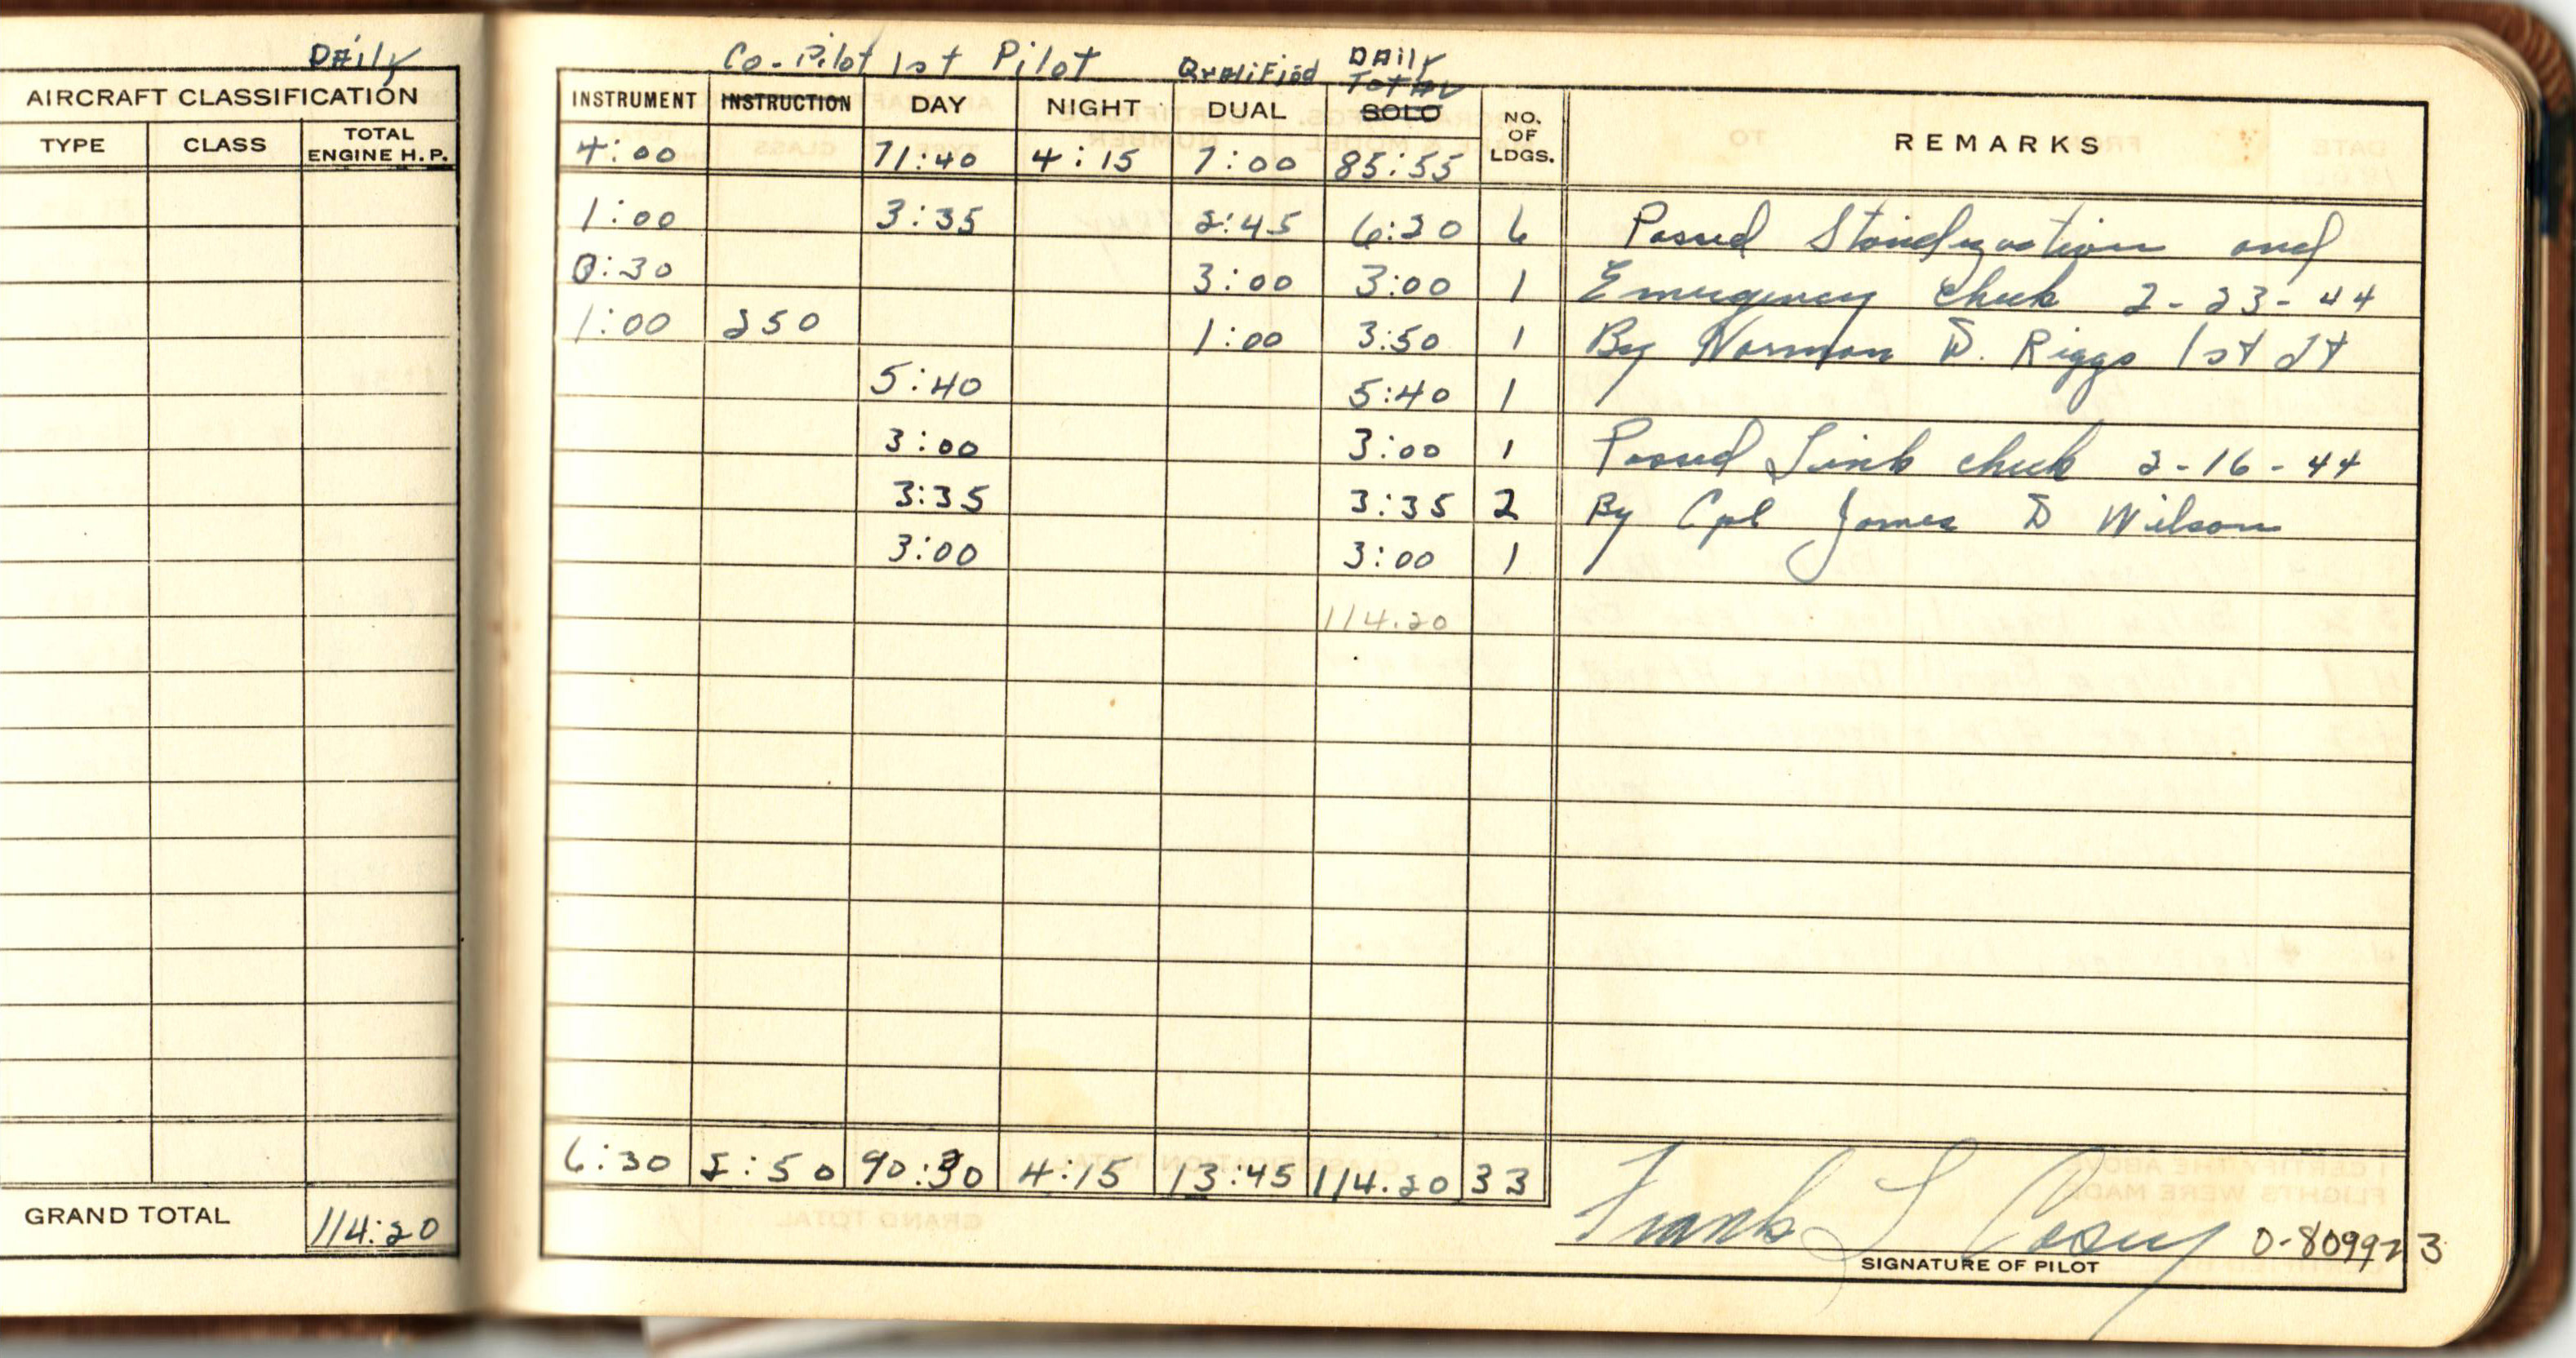 Daily
AIRCRAFT CLASSIFICATION
TYPE CLASS TOTAL ENGINE H. P.
GRAND TOTAL 114:20
Co-Pilot 1st Pilot Qualified Daily
Total
INSTRUMENT INSTRUCTION DAY NIGHT DUAL SOLO NO. OF LDGS. REMARKS
4:00 71:40 4:15 7:00 85:55
1:00 3:35 2:45 6:20 6 Passed Standization and
0:30 3:00 3:00 1 Emergency Check 2-23-44
1:00 250 1:00 3:50 1 By Norman D. Riggs 1st Lt
5:40 5:40 1
3:00 3:00 1 Passed Link check 2-16-44
3:35 3:35 2 By Cpl James D Wilson
3:00 3:00 1
114.20
6:30 2:50 90:30 4:15 13:45 114.20 33
Frank L Casey 0-809923
SIGNATURE OF PILOT